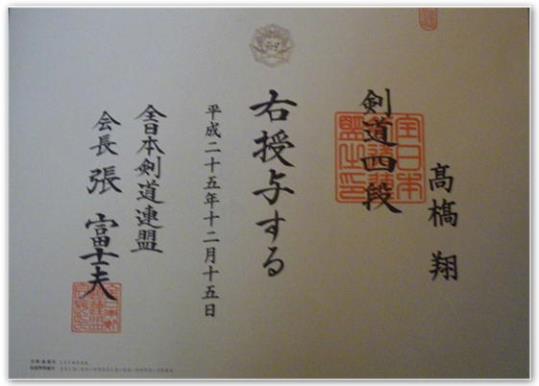 髙橋 翔
剣道四段
右授与する
平成二十五年十二月十五日
全日本剣道連盟
会長 張 富士夫